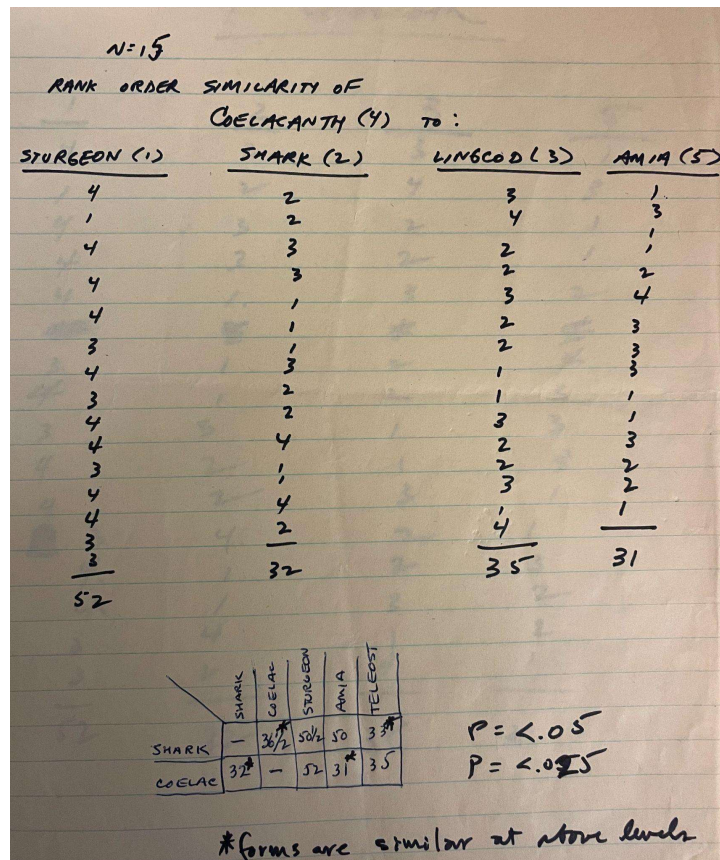 N=15
RANK ORDER SIMILARITY OF
COELACANTH (4) TO:
STURGEON (1) SHARK (2) LINGCOD (3) AMIA (5)
4 2 3 1
1 2 4 3
4 3 2 1
4 3 2 1
4 1 3 2
3 1 2 4
4 1 2 3
3 3 1 3
4 2 1 3
4 2 3 1
3 4 2 1
4 1 2 3
4 1 3 2
3 4 1 2
3 2 4 1
52 32 35 31
SHARK COELAC STURGEON AMIA TELEOST
SHARK — 36½* 50½ 50 33*
COELAC 32* — 52 31* 35
P = <.05
P = <.025
*forms are similar at above levels